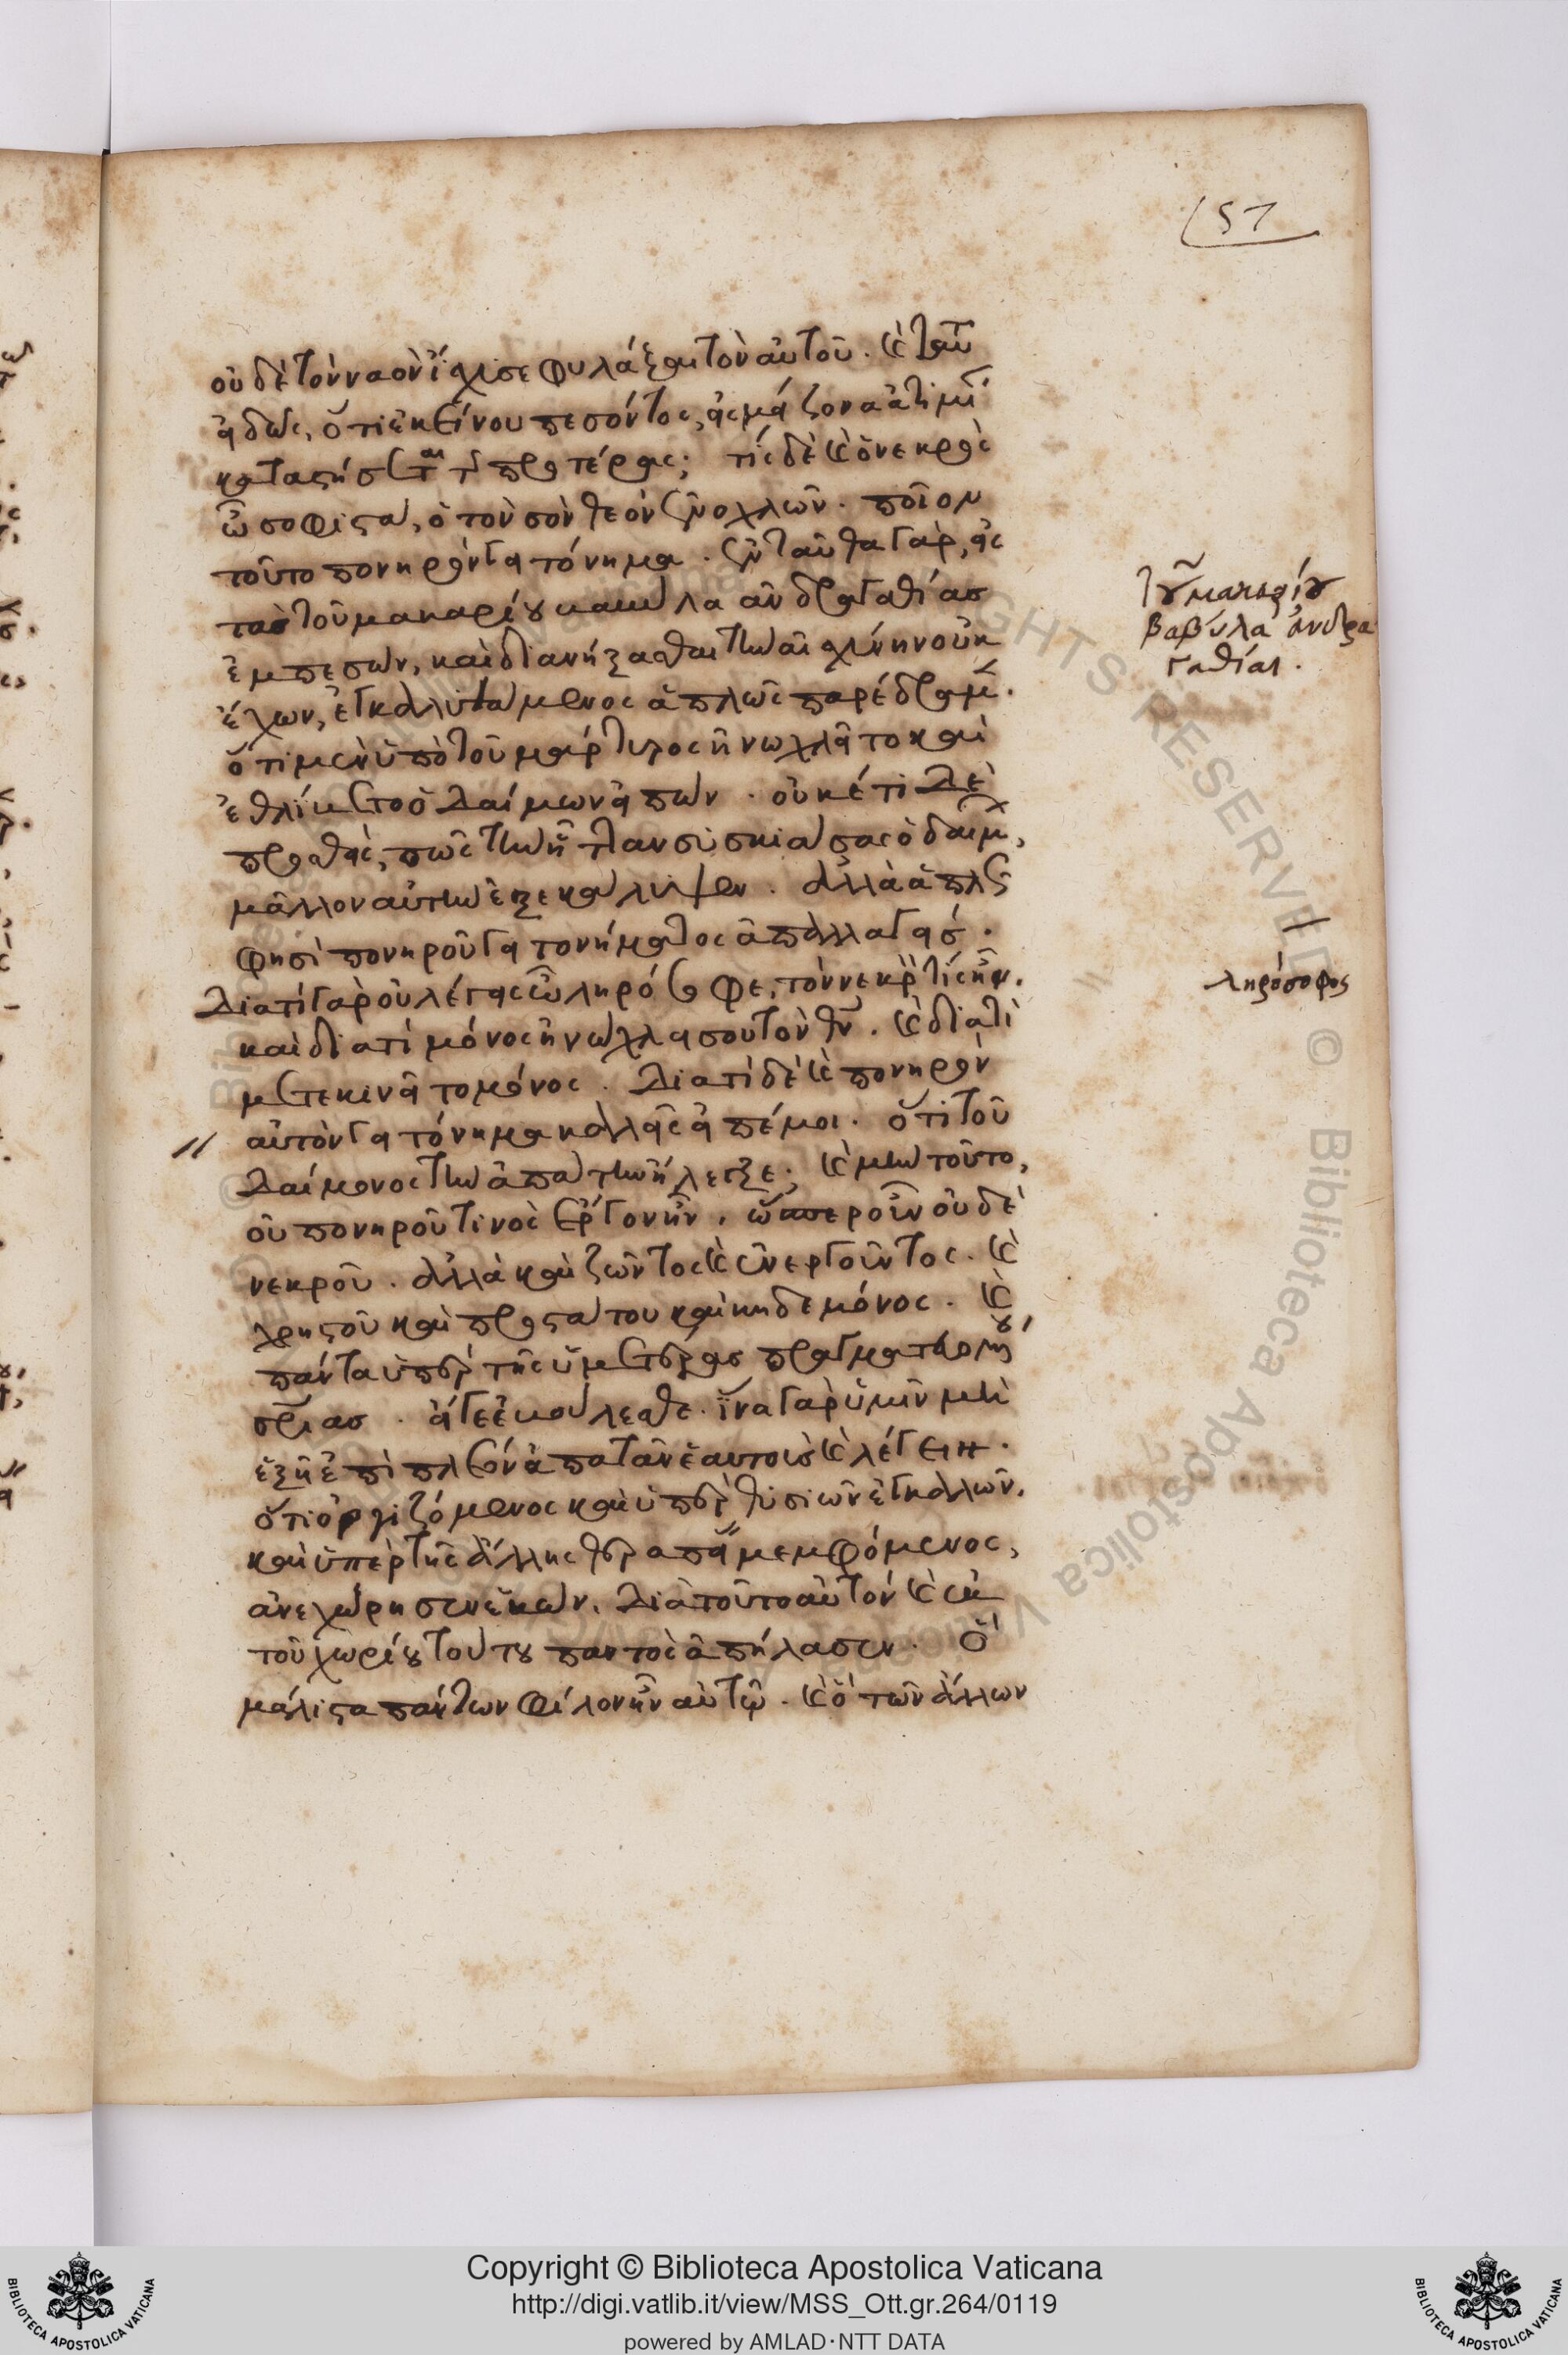 57
οὐδὲ τὸν ναὸν ἴσχυσε φυλάξαι τὸν αὐτοῦ. καὶ ταῦτ
εἰδὼς, ὅτι ἐκείνου πεσόντος, εἰς μείζονα ἀτιμί
καταστήσεται τῆς προτέρας; τίς δὲ καὶ ὁ νεκρὸς
ὦ σοφιστὰ, ὁ τὸν σὸν θεὸν ἐνοχλῶν. ποῖον
τοῦτο πονηρὸν γειτόνημα. ἐνταῦθα γὰρ, εἰς
τὰς τοῦ μακαρίου βαβύλα ἀνδραγαθίας
ἐμπεσὼν, καὶ διανήξασθαι τὴν αἰσχύνην οὐκ
ἔχων, ἐγκαλυψάμενος ἁπλῶς παρέδραμεν.
ὅτι μὲν ὑπὸ τοῦ μάρτυρος ἠνωχλεῖτο καὶ
ἐθλίβετο ὁ δαίμων εἰπών. οὐκέτι δὲ
προσθεὶς, πῶς τὴν ἧτταν συσκιάσας ὁ δαίμων,
μᾶλλον αὐτὴν ἐξεκάλυψεν. ἀλλὰ ἁπλῶς
φησὶ πονηροῦ γειτονήματος ἀπαλλαγείς.
διατί γὰρ οὐ λέγεις ὦ ληρόσοφε, τὸν νεκρὸν τίς ἦν.
καὶ διατί μόνος ἠνώχλει σου τὸν θν. καὶ διατί
μετεκινεῖτο μόνος. διατί δὲ καὶ πονηρὸν
αὐτὸν γειτόνημα καλεῖς εἰπέ μοι. ὅτι τοῦ
δαίμονος τὴν ἀπάτην ἤλεγξε; καὶ μὴν τοῦτο,
οὐ πονηροῦ τινὸς ἔργον ἦν. ὥσπερ οὖν οὐδὲ
νεκροῦ. ἀλλὰ καὶ ζῶντος καὶ ἐνεργοῦντος. καὶ
χρηστοῦ καὶ προστάτου καὶ κηδεμόνος. καὶ
πάντα ὑπὲρ τῆς ὑμετέρας πραγματευομένου
σριας. εἴγε ἐβούλεσθε. ἵνα γὰρ ὑμῖν μὴ
ἐξῇ ἐπὶ πλεῖον ἀπατᾶν ἑαυτοὺς καὶ λέγειν.
ὅτι ὀργιζόμενος καὶ ὑπὲρ θυσιῶν ἐγκαλῶν.
καὶ ὑπὲρ τῆς ἄλλης θεραπείας μεμφόμενος,
ἀνεχώρησεν ἑκών. διὰ τοῦτο αὐτὸν καὶ ἐκ
τοῦ χωρίου τούτου παντὸς ἀπήλασεν. ὃ
μάλιστα πάντων φίλον ἦν αὐτῷ. καὶ ὃ τῶν ἄλλων
τοῦ μακαρίου
βαβύλα ἀνδρα
γαθίαι.
ληρόσοφος
Copyright © Biblioteca Apostolica Vaticana
http://digi.vatlib.it/view/MSS_Ott.gr.264/0119
powered by AMLAD·NTT DATA
BIBLIOTECA APOSTOLICA VATICANA
BIBLIOTECA APOSTOLICA VATICANA